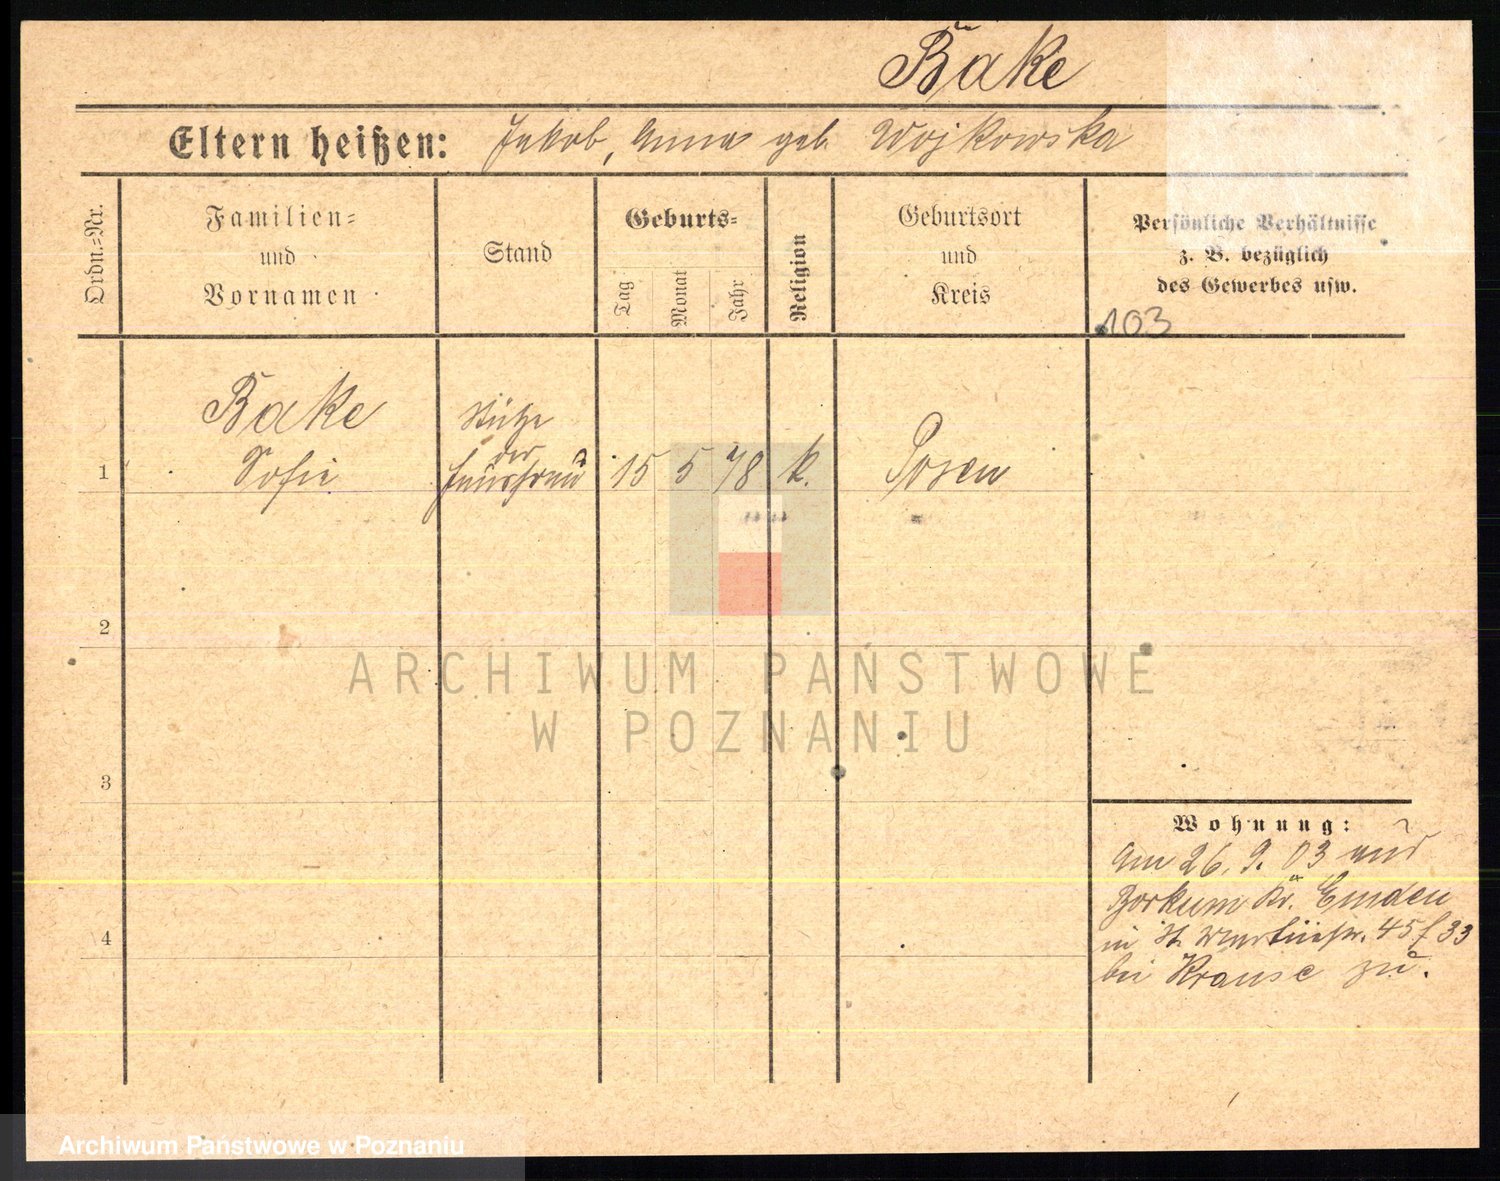 Bąke
Eltern heißen: Jakob, Anna geb. Wojkowska
Ordn.=Nr.
Familien=
und
Vornamen
Stand
Geburts=
Tag
Monat
Jahr
Religion
Geburtsort
und
Kreis
Persönliche Verhältnisse
z. B. bezüglich
des Gewerbes usw.
103
1
Bake
Sofie
Stütze
der
Hausfrau
15 5 78 k.
Posen
2
3
4
Wohnung:
Am 26. 9. 03 aus
Borkum Kr. Emden
in St. Martinstr. 45/33
bei Krause zu.
ARCHIWUM PAŃSTWOWE
W POZNANIU
Archiwum Państwowe w Poznaniu